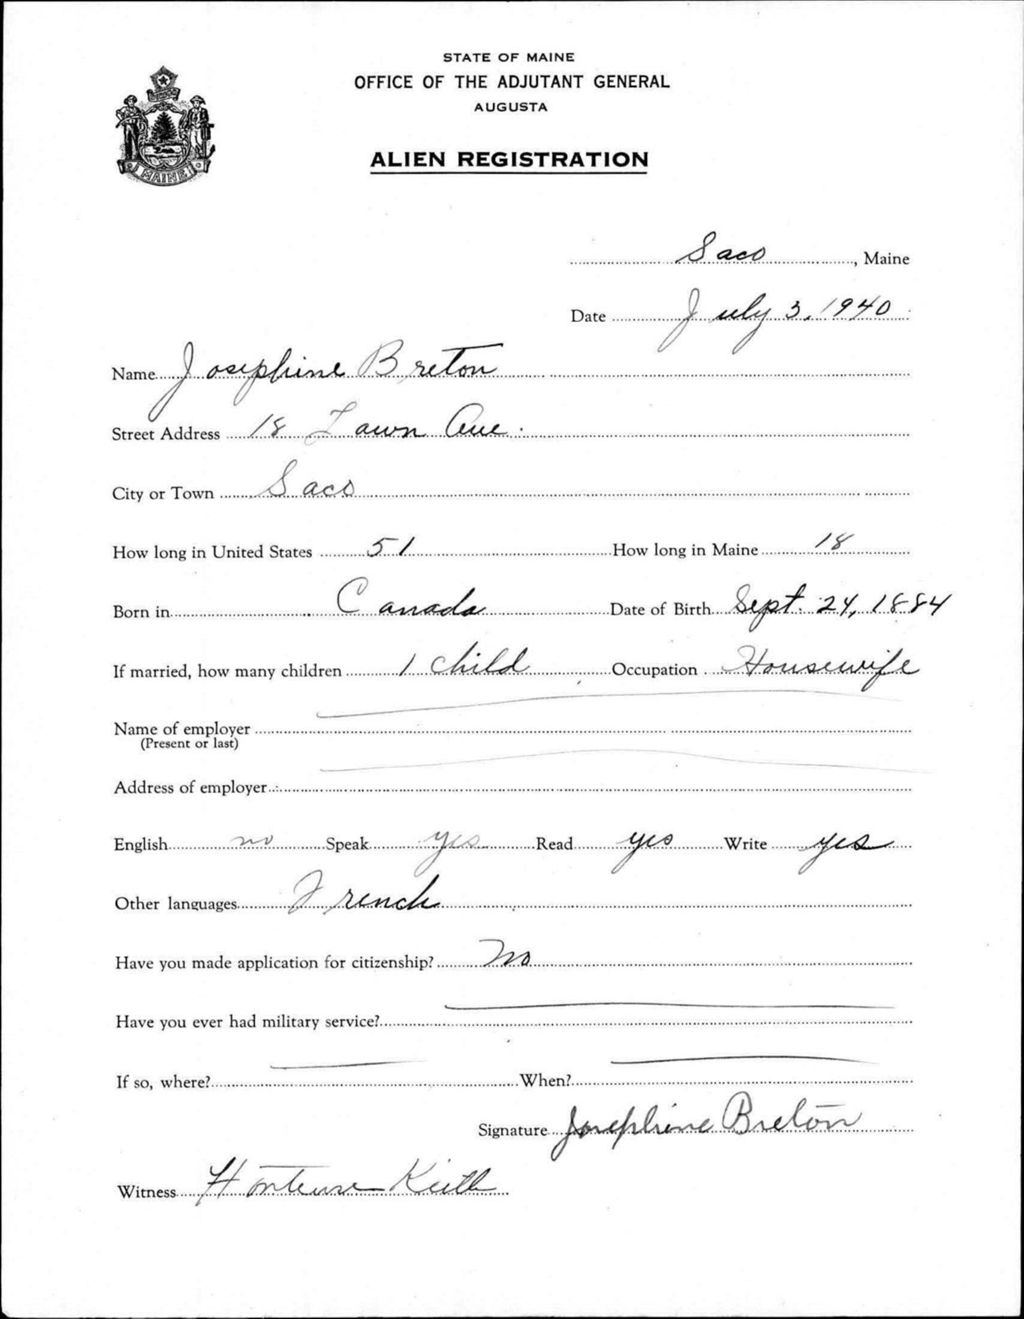 STATE OF MAINE
OFFICE OF THE ADJUTANT GENERAL
AUGUSTA
ALIEN REGISTRATION
MAINE
Saco, Maine
Date July 3, 1940
Name Josephine Breton
Street Address 18 Lawn Ave.
City or Town Saco
How long in United States 51 How long in Maine 18
Born in Canada Date of Birth Sept. 24, 1884
If married, how many children 1 child Occupation Housewife
Name of employer
(Present or last)
Address of employer
English no Speak yes Read yes Write yes
Other languages French
Have you made application for citizenship? No
Have you ever had military service?
If so, where? When?
Signature Josephine Breton
Witness Hortense Keith